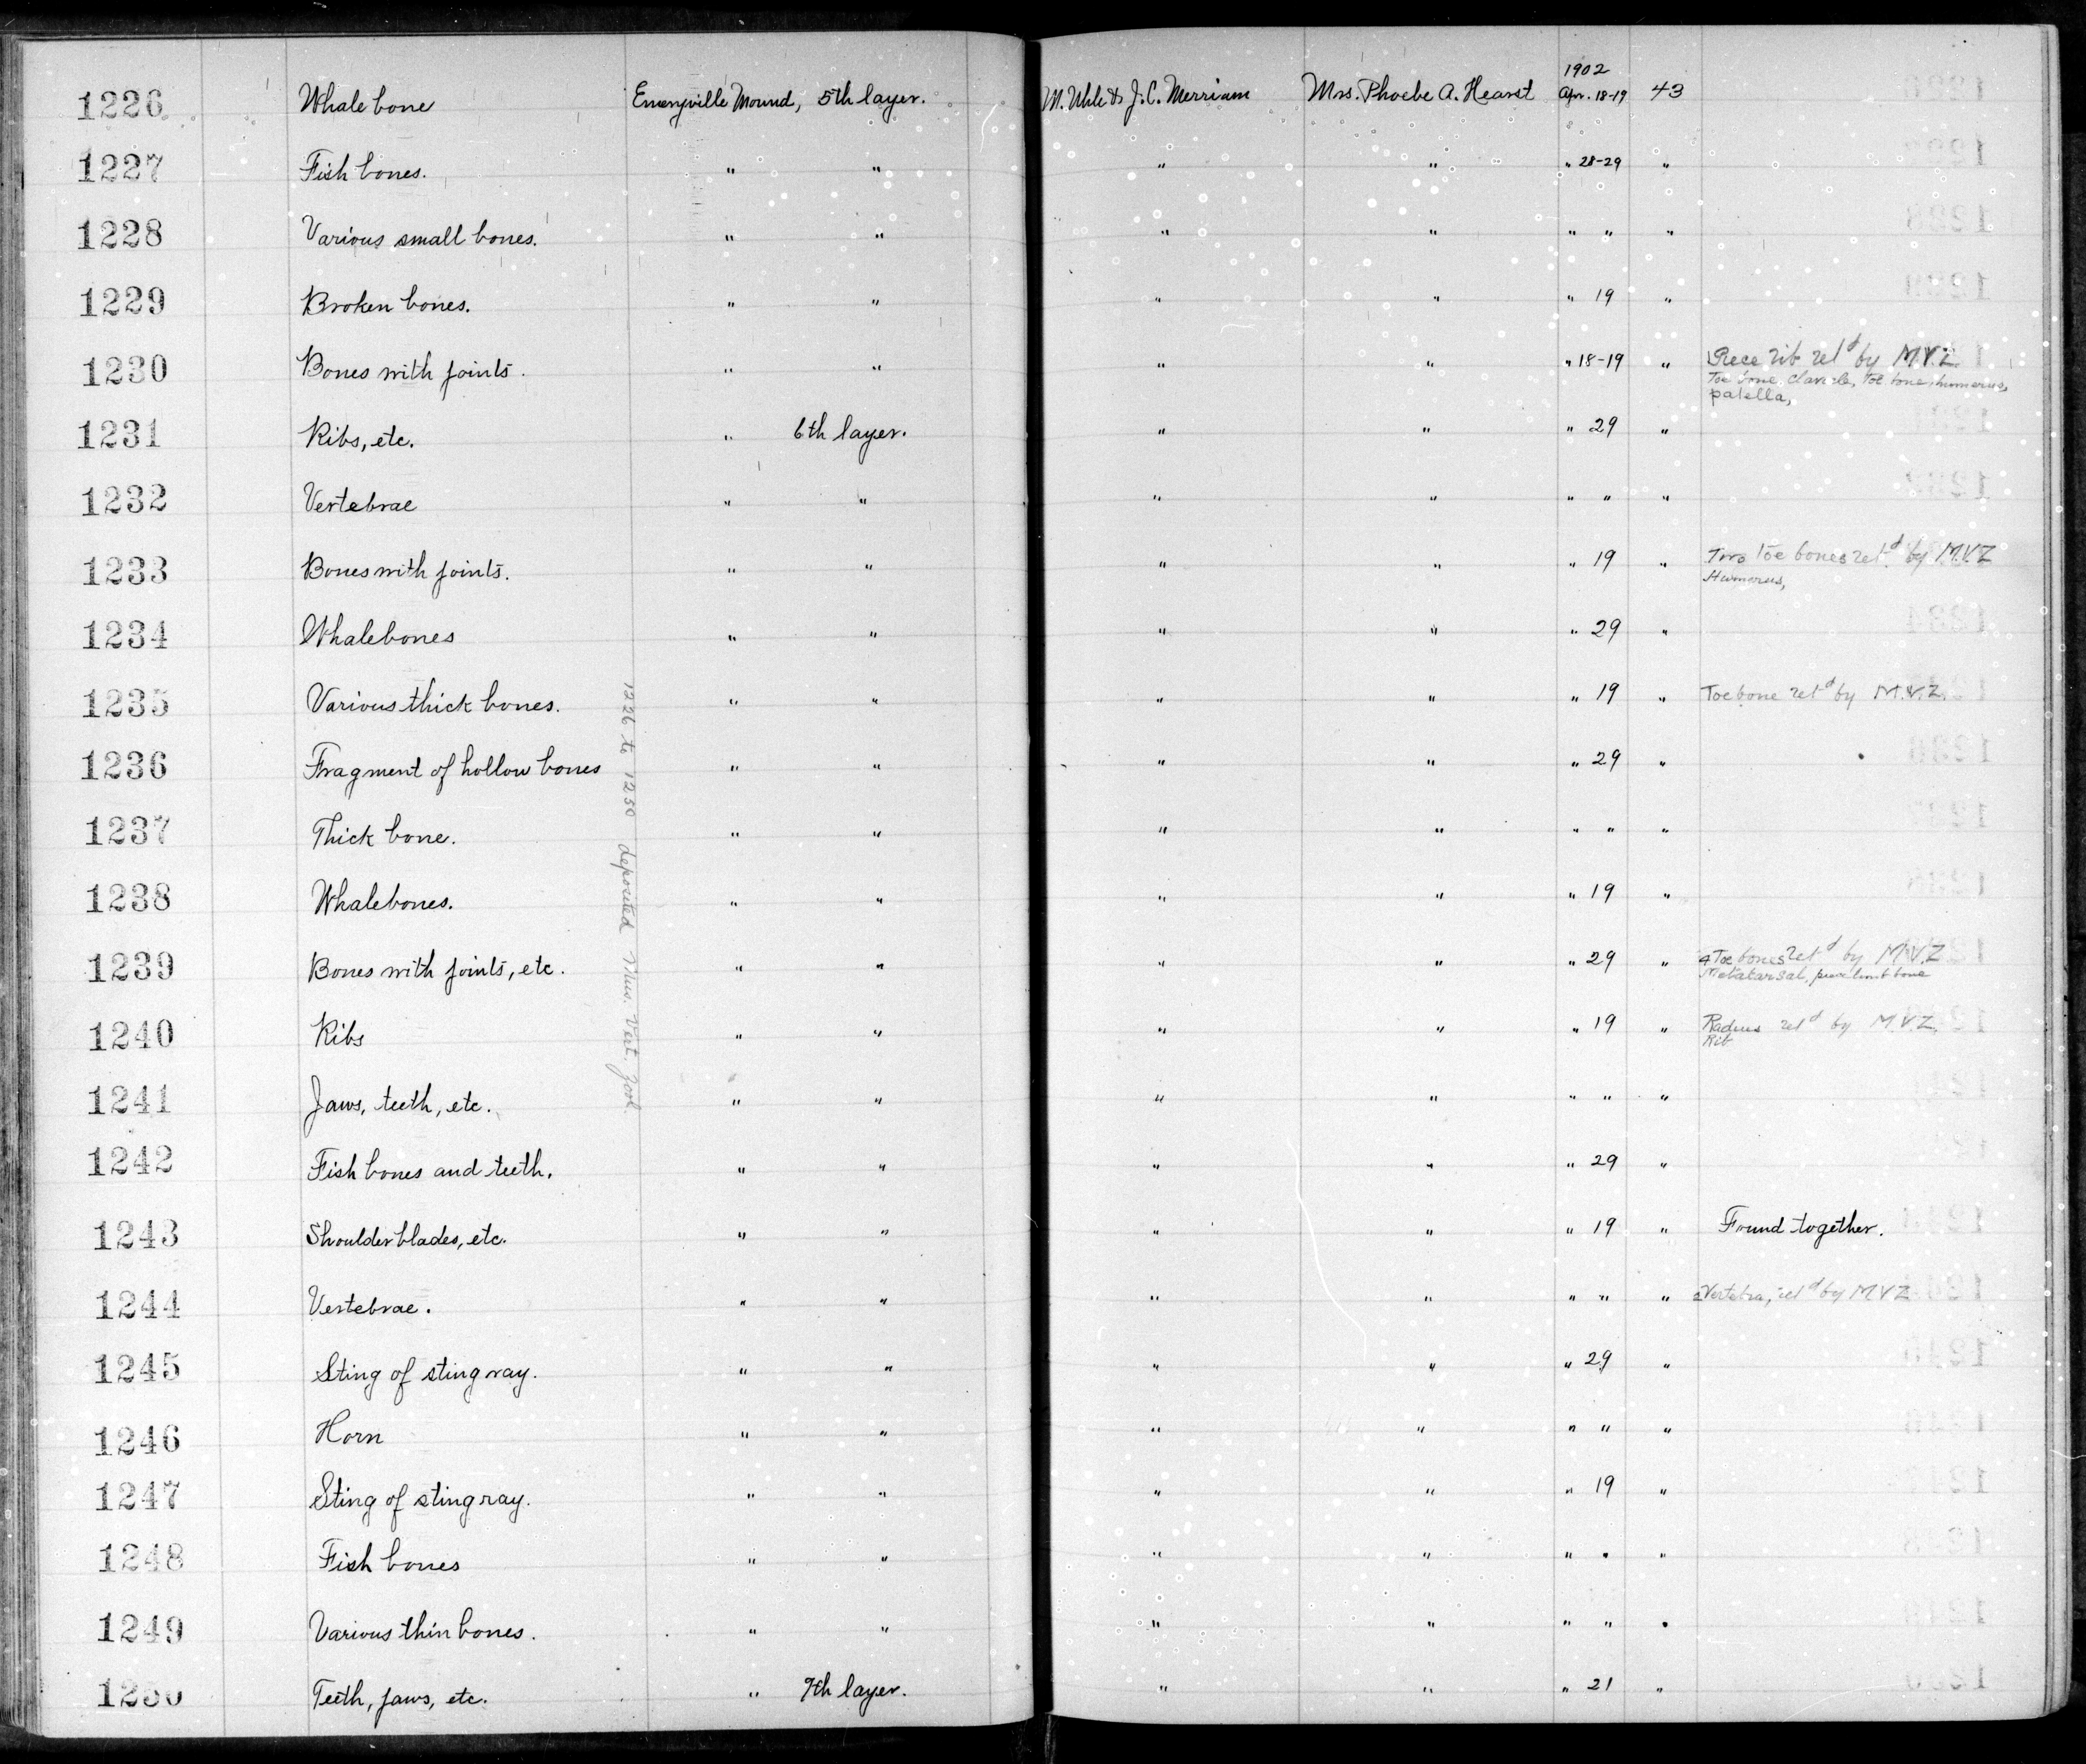 1902
1226 Whale bone Emeryville Mound, 5th layer. M. Uhle & J.C. Merriam Mrs. Phoebe A. Hearst Apr. 18-19 43
1227 Fish bones. " " " " " 28-29 "
1228 Various small bones. " " " " " " "
1229 Broken bones. " " " " " 19 "
1230 Bones with joints. " " " " " 18-19 " Piece rib ret'd by M.V.Z.
Toe bone, clavicle, toe bone, humerus,
patella,
1231 Ribs, etc. " 6th layer. " " " 29 "
1232 Vertebrae " " " " " " "
1233 Bones with joints. " " " " " 19 " Two toe bones ret'd by M.V.Z
Humerus,
1234 Whalebones " " " " " 29 "
1235 Various thick bones. " " " " " 19 " Toe bone ret'd by M.V.Z.
1236 Fragment of hollow bones " " " " " 29 "
1237 Thick bone. " " " " " " "
1238 Whalebones. " " " " " 19 "
1239 Bones with joints, etc. " " " " " 29 " 4 Toe bones ret'd by M.V.Z
Metatarsal, piece limb bone
1240 Ribs " " " " " 19 " Radius ret'd by M.V.Z.
Rib
1241 Jaws, teeth, etc. " " " " " " "
1242 Fish bones and teeth. " " " " " 29 "
1243 Shoulder blades, etc. " " " " " 19 " Found together.
1244 Vertebrae. " " " " " " " Vertebra, ret'd by MVZ
1245 Sting of sting ray. " " " " " 29 "
1246 Horn " " " " " " "
1247 Sting of sting ray. " " " " " 19 "
1248 Fish bones " " " " " " "
1249 Various thin bones. " " " " " " "
1250 Teeth, jaws, etc. " 9th layer. " " " 21 "
1226 to 1250 deposited Mus. Vert. Zool